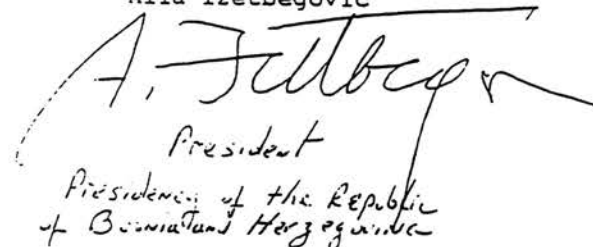 Alija Izetbegovic
A. Izetbegov
President
Presidency of the Republic
of Bosnia and Herzegovina